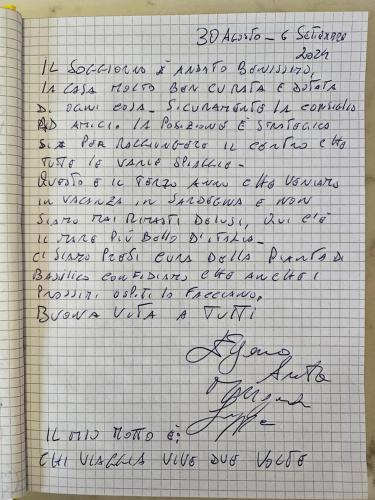 30 Agosto - 6 Settembre
2024
IL SOGGIORNO È ANDATO BENISSIMO,
LA CASA MOLTO BEN CURATA E DOTATA
DI OGNI COSA. SICURAMENTE LA CONSIGLIO
AD AMICI. LA POSIZIONE È STRATEGICA
SIA PER RAGGIUNGERE IL CENTRO CHE
TUTTE LE VARIE SPIAGGIE.
QUESTO È IL TERZO ANNO CHE VENIAMO
IN VACANZA IN SARDEGNA E NON
SIAMO MAI RIMASTI DELUSI, QUI C'È
IL MARE PIÙ BELLO D'ITALIA.
CI SIAMO PRESI CURA DELLA PIANTA DI
BASILICO CONFIDIAMO CHE ANCHE I
PROSSIMI OSPITI LO FACCIANO.
BUONA VITA A TUTTI
IL MIO MOTTO È:
CHI VIAGGIA VIVE DUE VOLTE